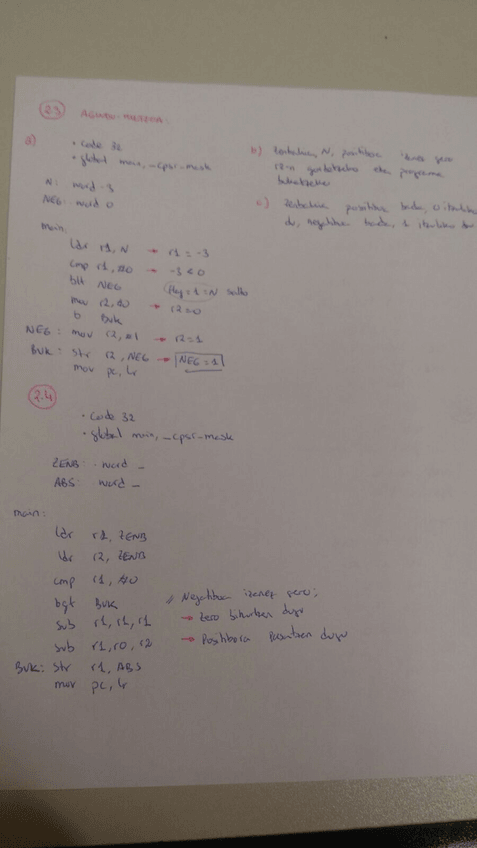 2.3
a)
• code 32
• global main, _cpsr-mask
N: word -3
NEG: word 0
main:
ldr r1, N → r1 = -3
cmp r1, #0 → -3 < 0
blt NEG flag = 1 = N salto
mov r2, #0 → r2=0
b BUK
NEG: mov r2, #1 → r2=1
BUK: str r2, NEG → NEG = 1
mov pc, lr
b) N, positiboa izanez gero
r2-n gordetzeko eta programa
c) Zenbakia positiboa bada, 0
du, negatiboa bada, 1
2.4
• code 32
• global main, _cpsr-mask
ZENB: .word _
ABS: word _
main:
ldr r1, ZENB
ldr r2, ZENB
cmp r1, #0
bgt BUK // Negatiboa izanez gero;
sub r1, r1, r1 → Zero bihurtzen dugu
sub r1, r0, r2 → Positibora pasatzen dugu
BUK: str r1, ABS
mov pc, lr